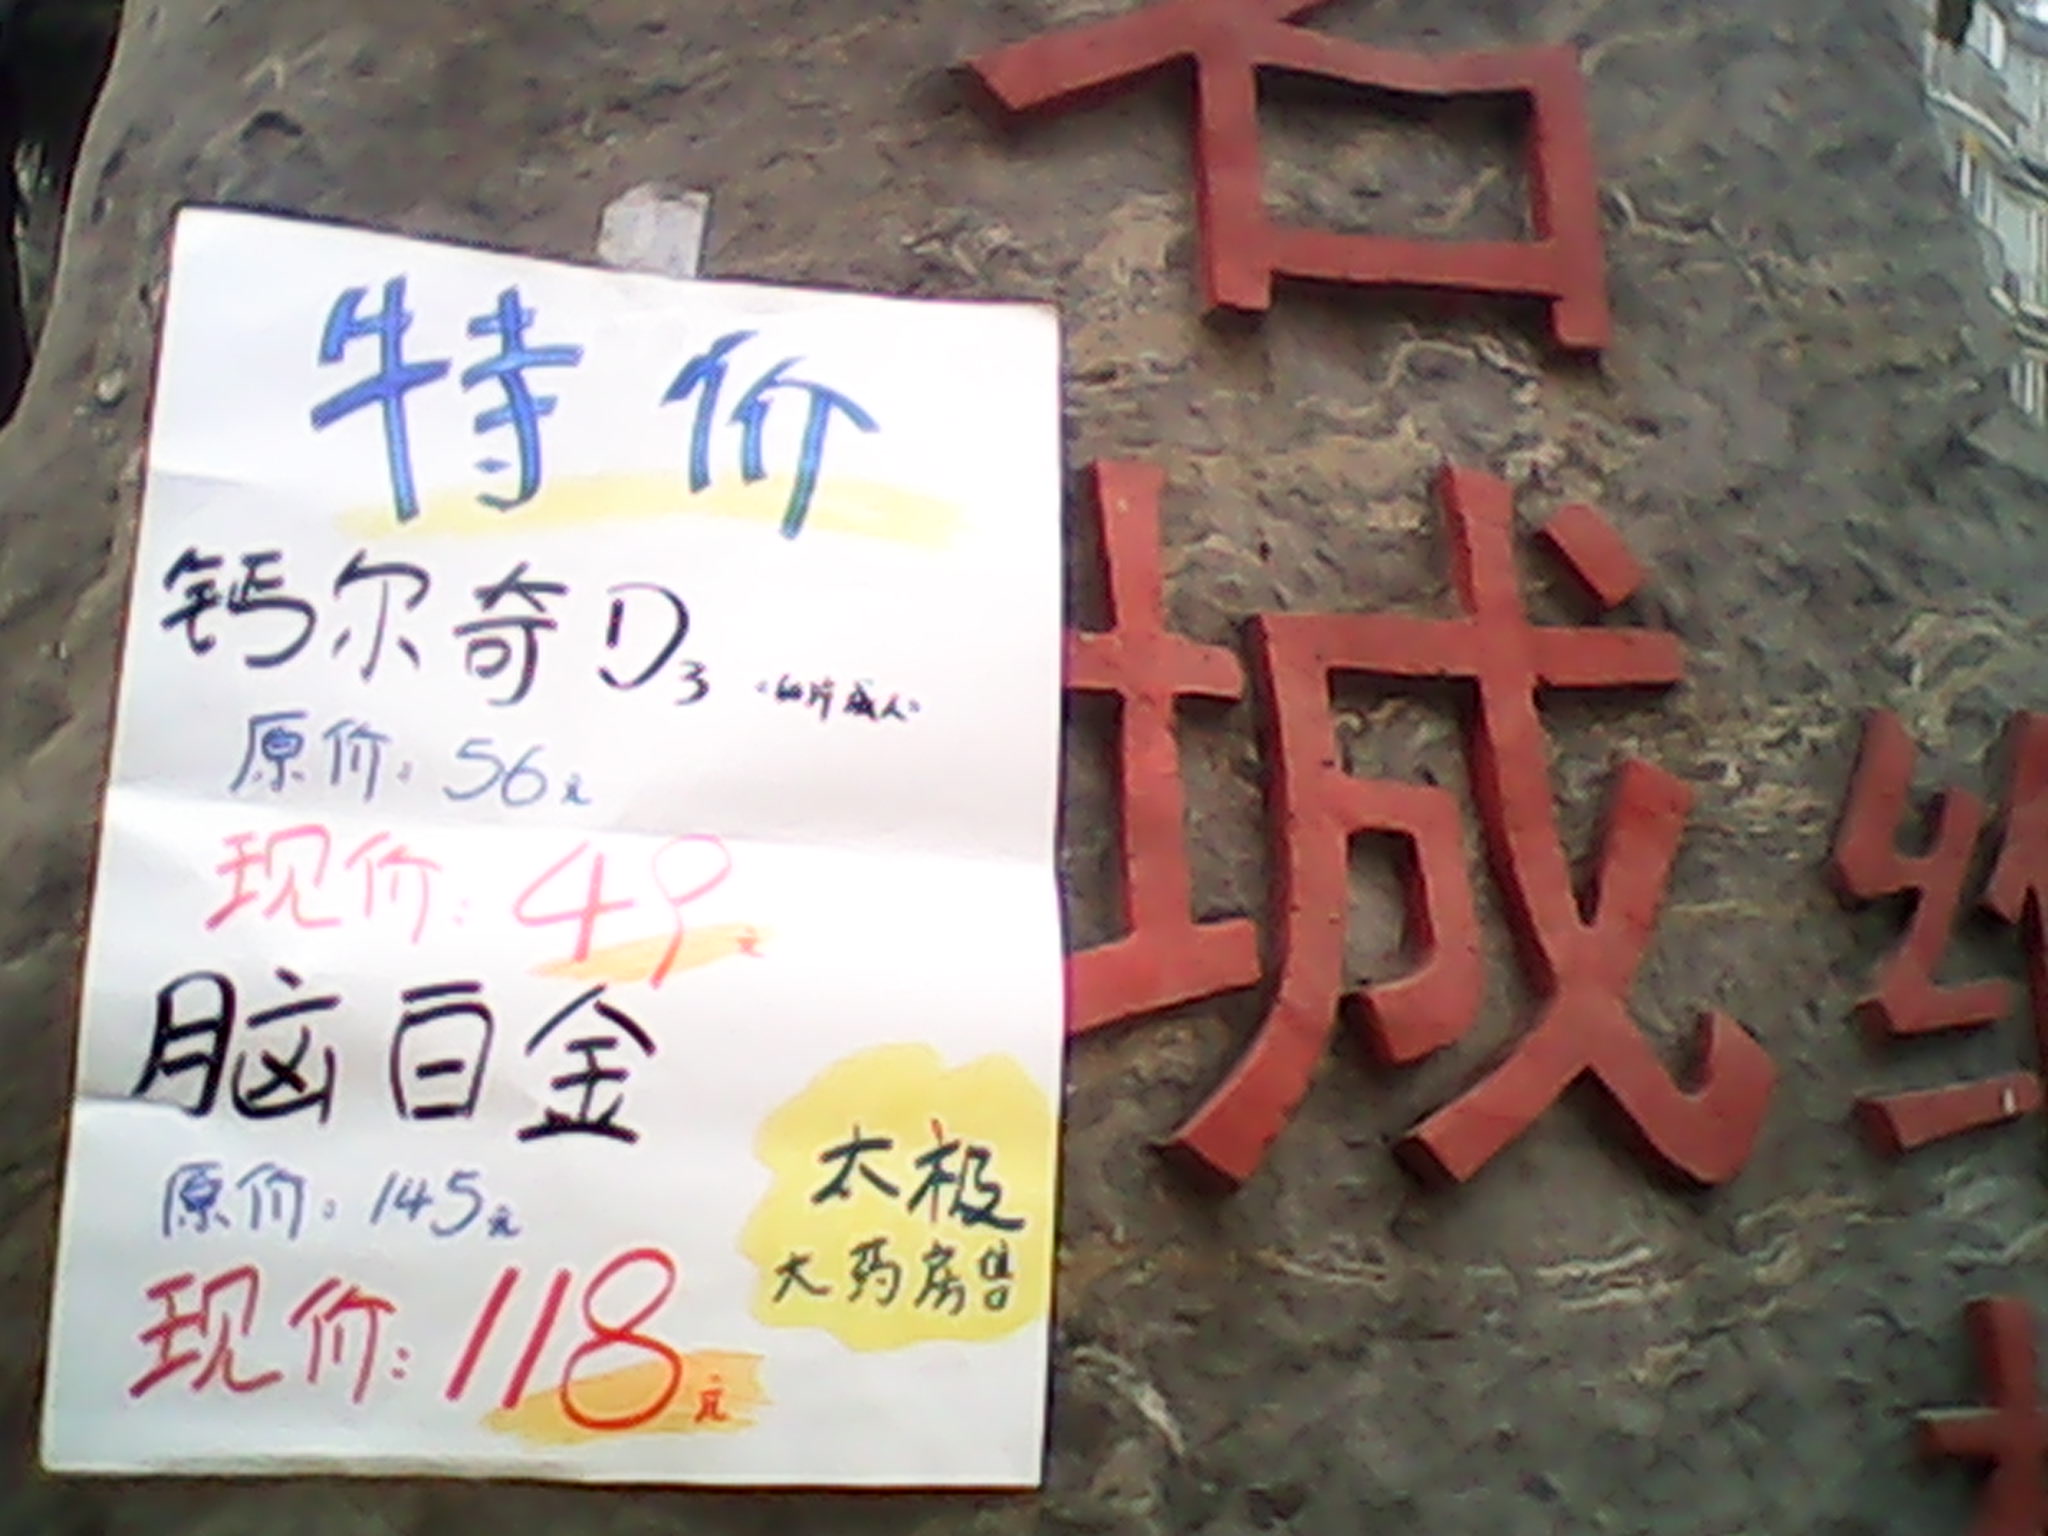 特价
钙尔奇D3
原价:56元
现价:49元
脑白金
原价:145元
现价:118元
太极
大药房售
名
城